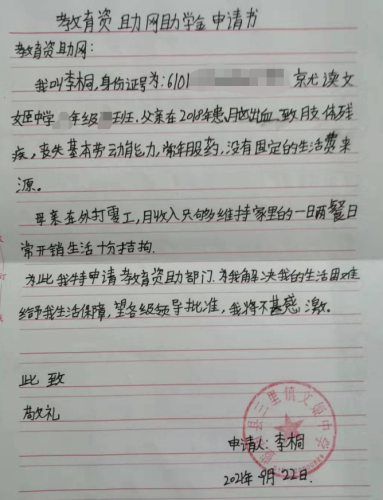 教育资助网助学金申请书
教育资助网:
我叫李桐,身份证号为:6101 京尤读文
姬中学 年级 班,父亲在2018年患脑出血致肢体残
疾,丧失基本劳动能力,常年服药,没有固定的生活费来
源。
母亲在外打零工,月收入只够维持家里的一日两餐日
常开销生活十分拮据.
为此我特申请教育资助部门.为我解决我的生活困难
给予我生活保障,望各级领导批准,我将不甚感激。
此致
敬礼
县三里镇文姬中学
申请人:李桐
2021年9月22日.